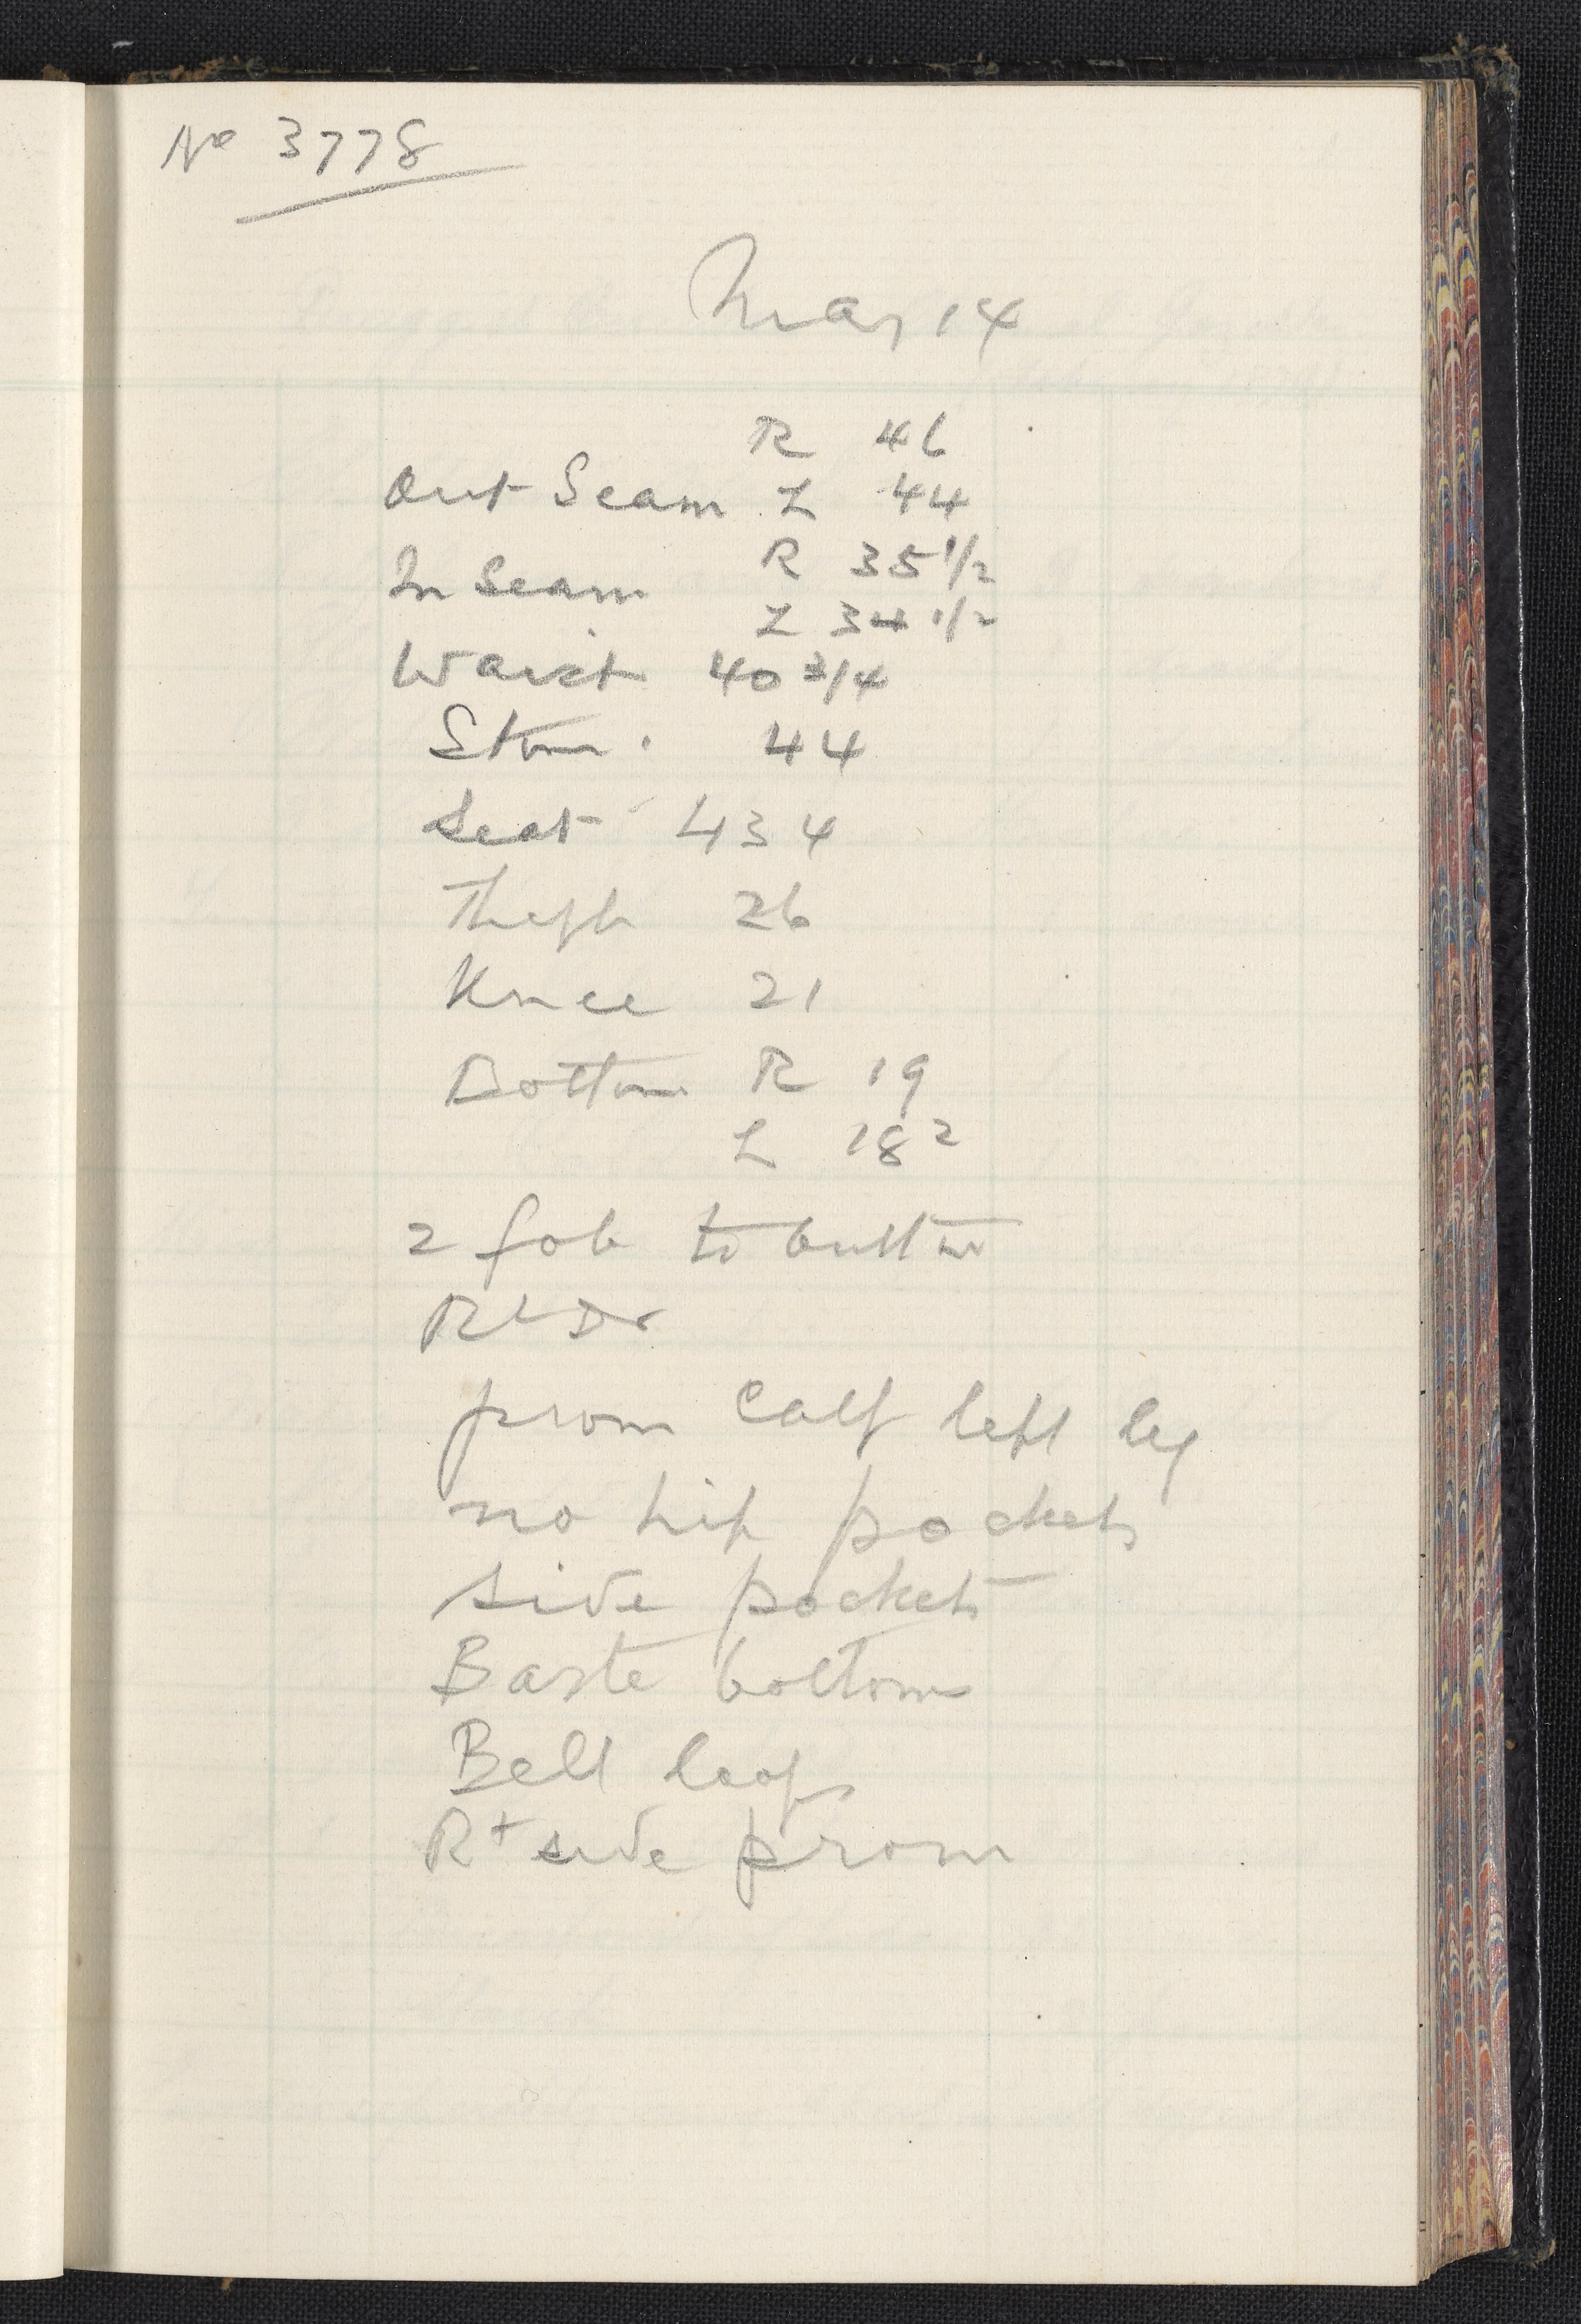 No 3778
Mar 14
R 46
Out Seam L 44
R 35 1/2
In Seam
L 34 1/2
Waist 40 3/4
Stom. 44
Seat 43 4
Thigh 26
Knee 21
Bottom R 19
L 18 2
2 fob to button
prom Calf left leg
no hip pockets
side pockets
Baste bottoms
Belt loops
Rt side prom